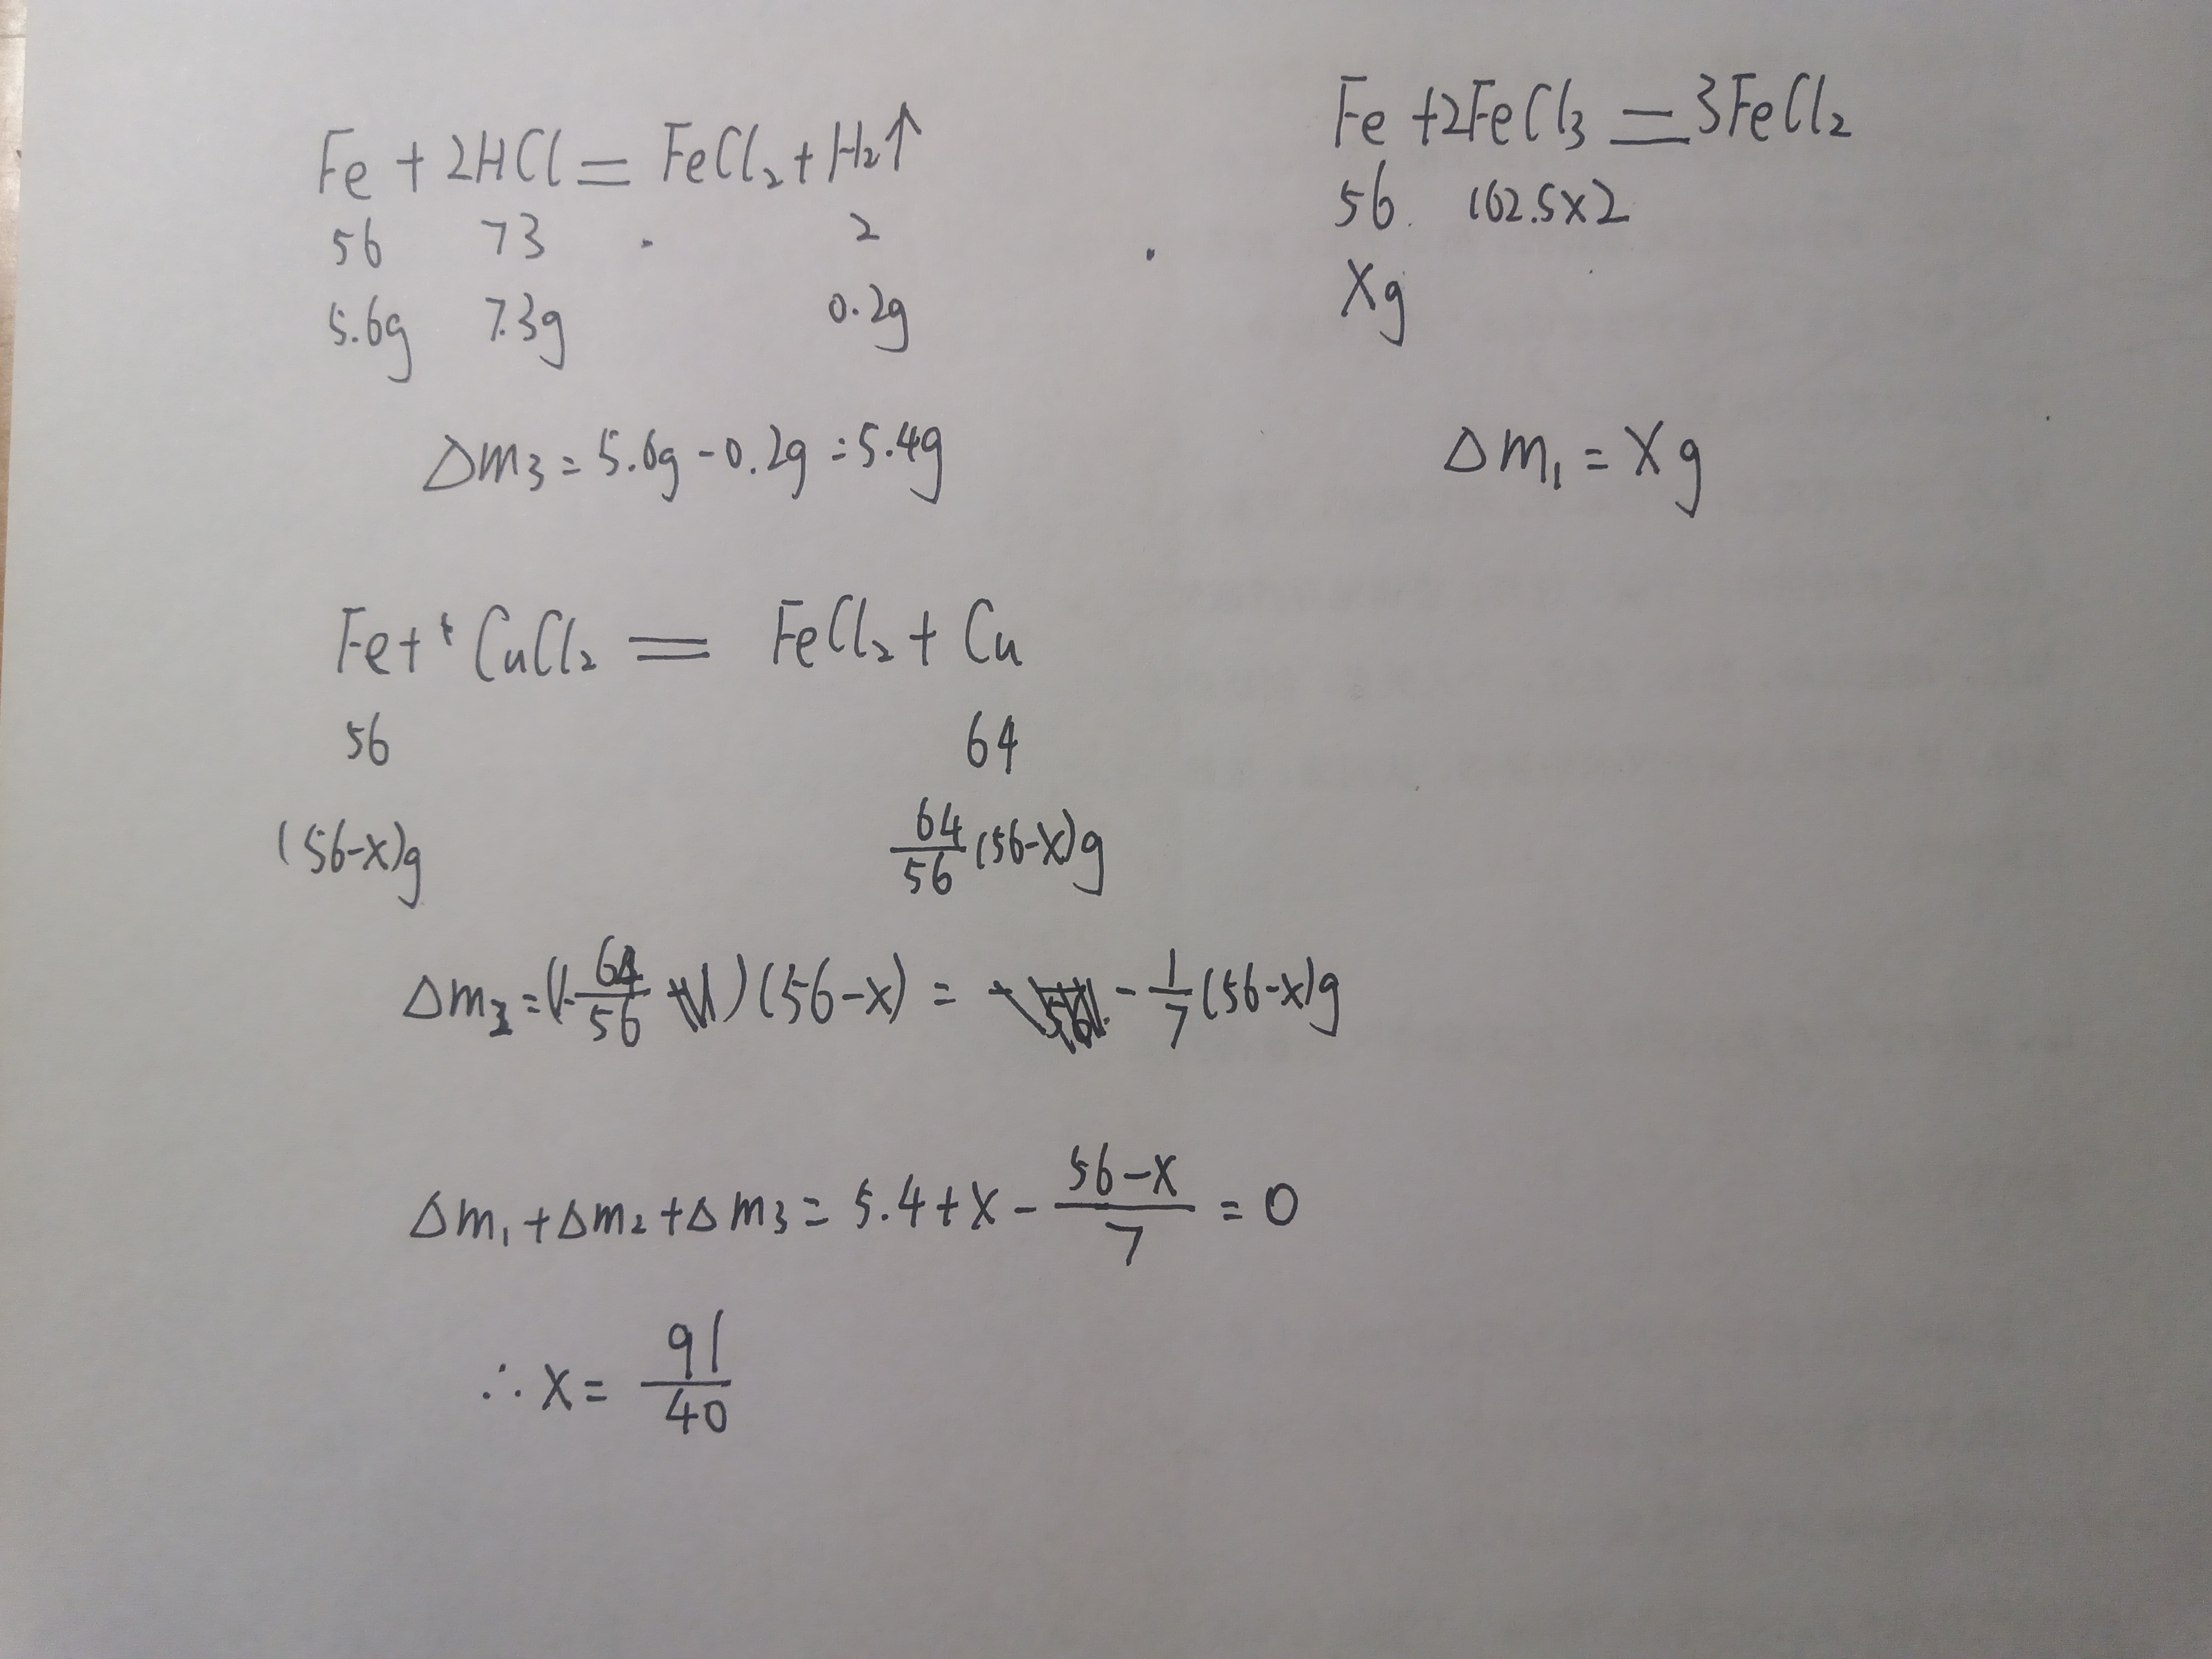 Fe + 2HCl = FeCl₂ + H₂↑
56 73 2
5.6g 7.3g 0.2g
Δm₃ = 5.6g - 0.2g = 5.4g
Fe + 2FeCl₃ = 3FeCl₂
56 162.5×2
Xg
Δm₁ = Xg
Fe + CuCl₂ = FeCl₂ + Cu
56 64
(56-x)g 64/56 (56-x)g
Δm₂ = (1-64/56)(56-x) = -1/7(56-x)g
Δm₁ + Δm₂ + Δm₃ = 5.4 + x - (56-x)/7 = 0
∴ x = 91/40